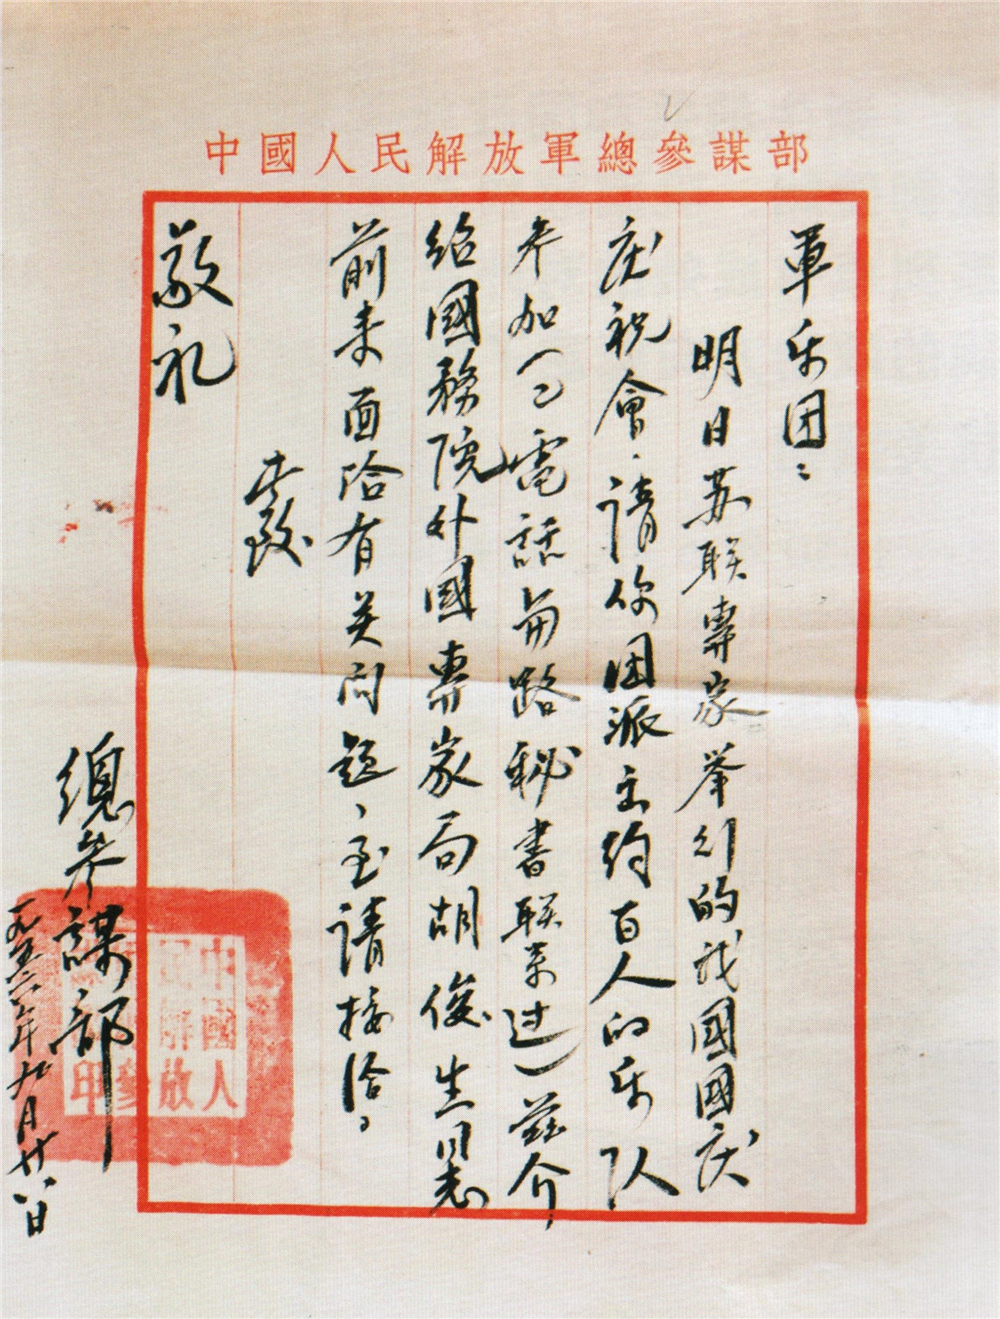 中國人民解放軍總參謀部
軍乐团：
明日苏联專家举行的我國國庆
庆祝会，请你团派出约百人的乐队
参加（已電話与路秘書联系过）兹介
绍國務院外國專家局胡俊生同志
前来面洽有关问题，至请接洽。
此致
敬礼
總参謀部
一九五六年九月廿八日
中國人
民解放
印